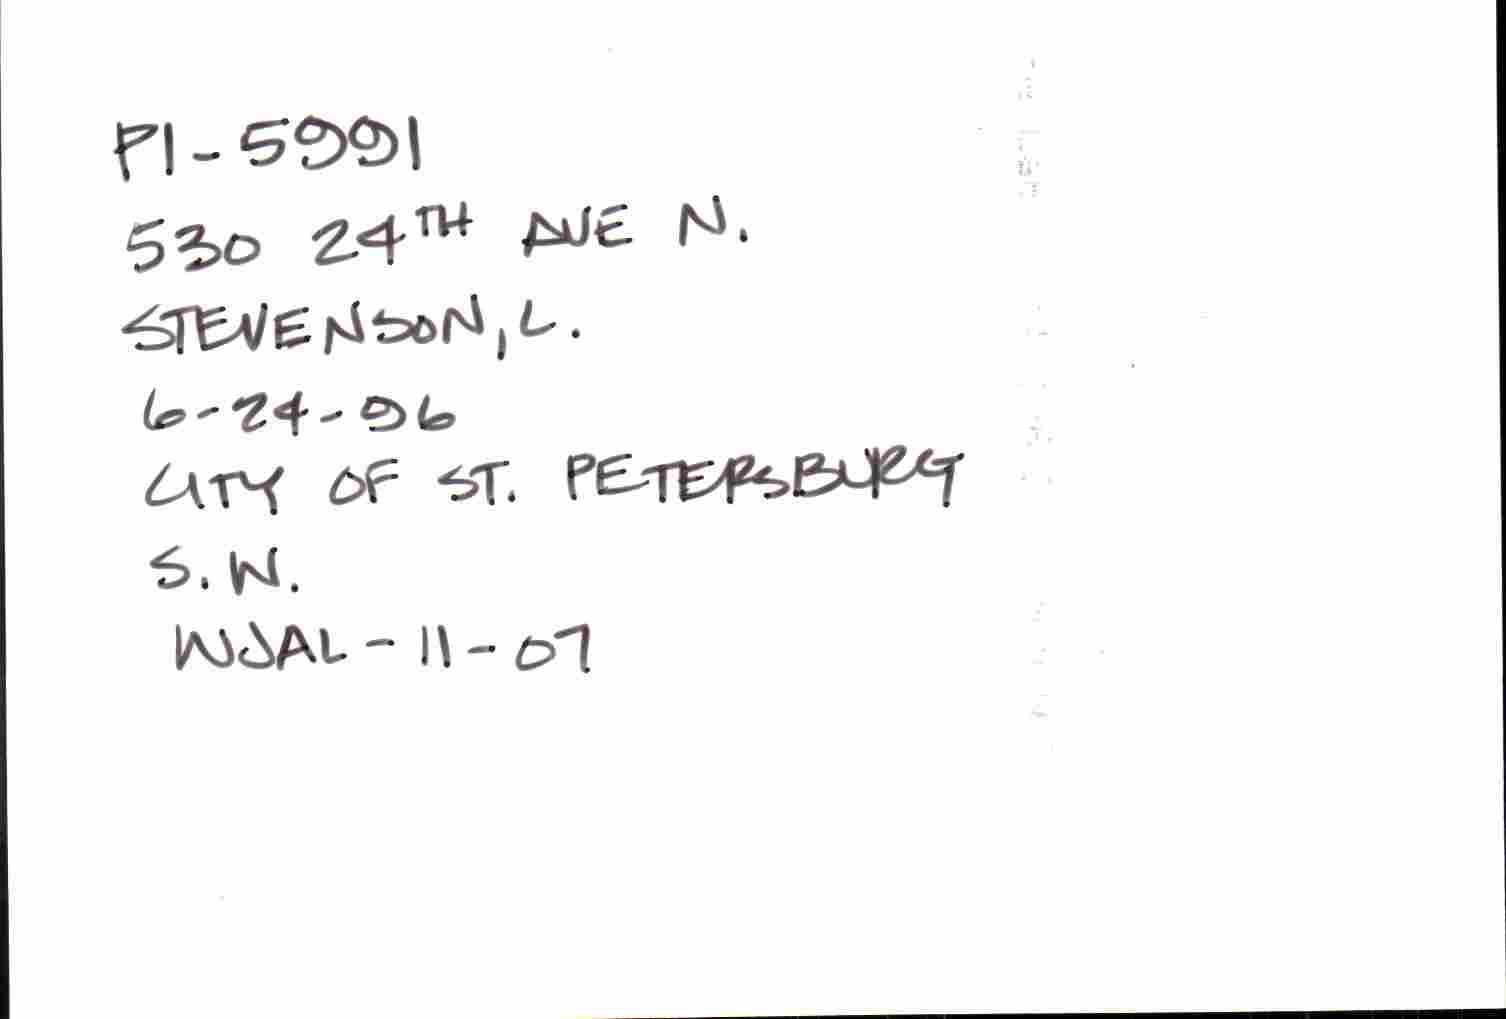 PI-5991
530 24TH AVE N.
STEVENSON, L.
6-24-96
CITY OF ST. PETERSBURG
S.W.
WJAL-11-07